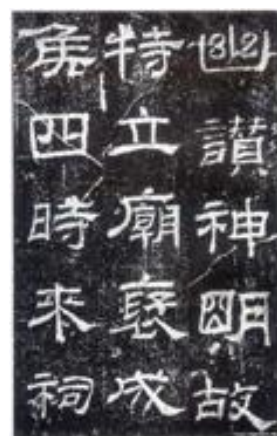 幽讚神明故
特立廟褒成
侯四時来祠